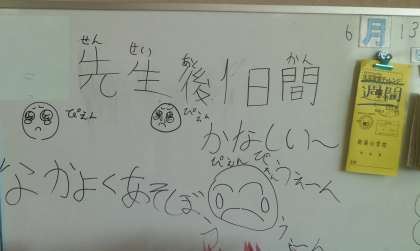 6 月 13
せん せい あと かん
先生後1日間
ぴえん ぴえん
かなしい〜
ぴえん ぴえん うぇーん
なかよくあそぼう
う
週間